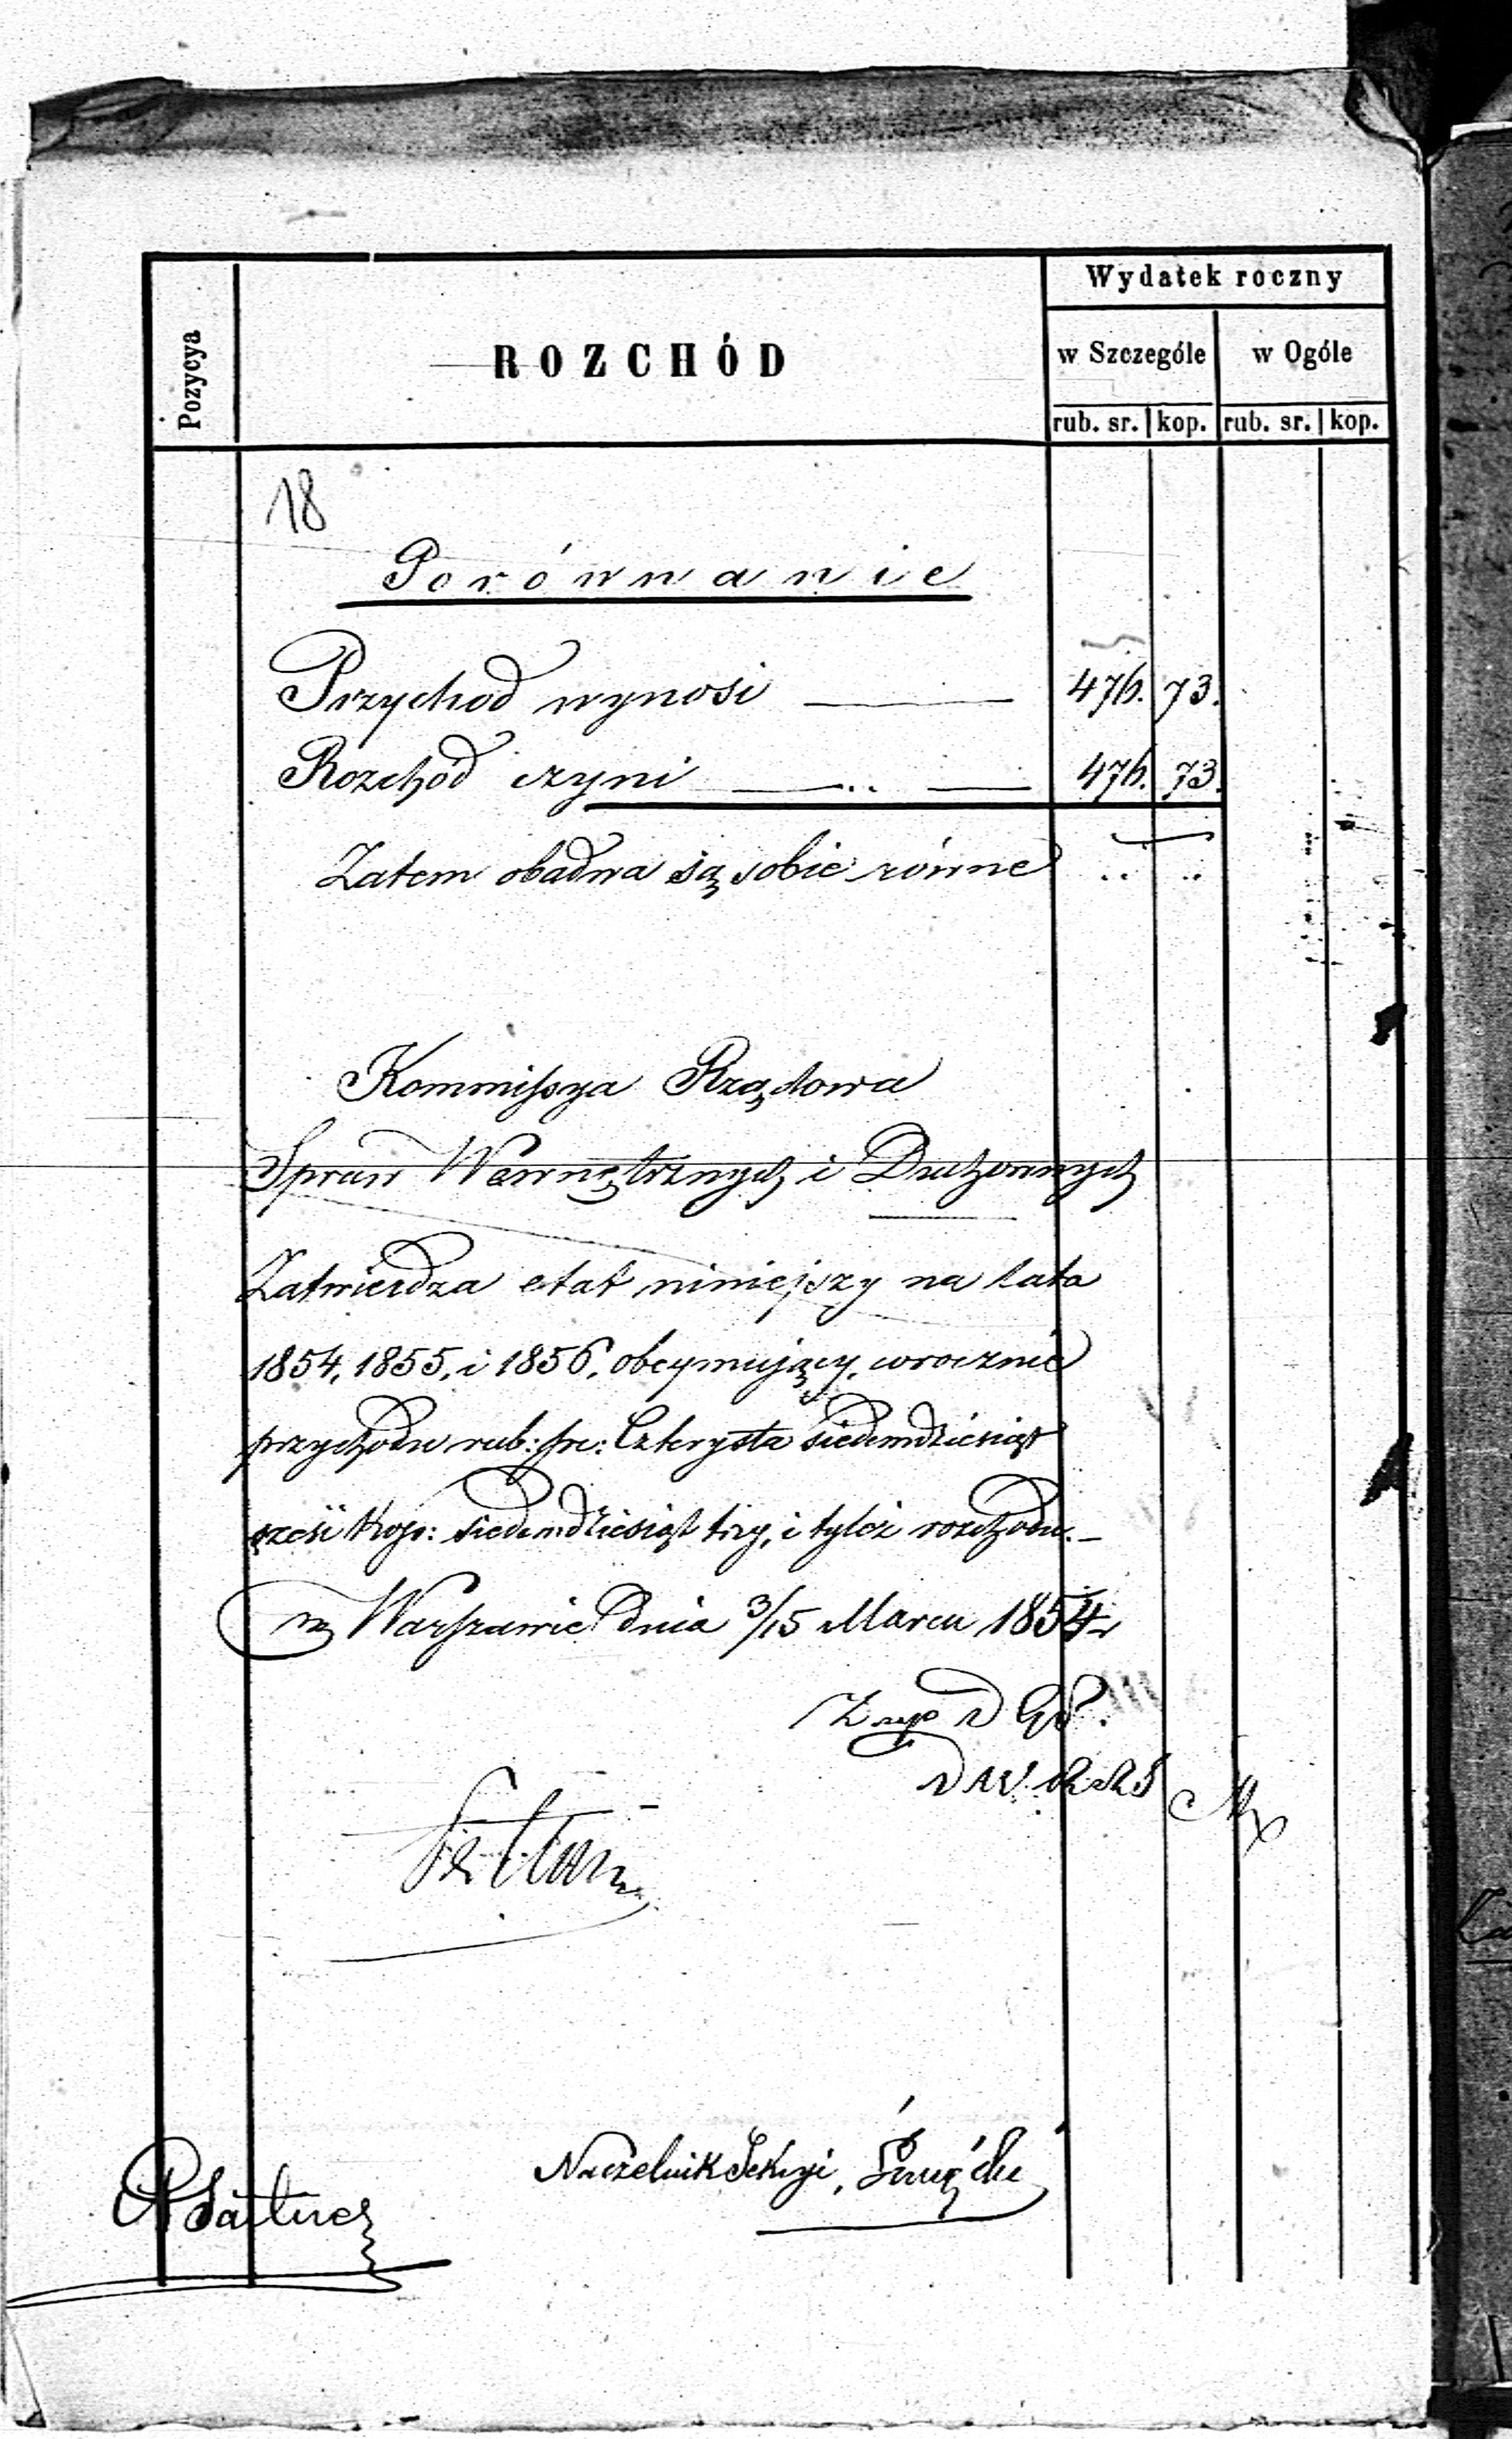 Pozycya
ROZCHÓD
Wydatek roczny
w Szczególe
w Ogóle
rub. sr. kop. rub. sr. kop.
18
Porównanie
Przychod wynosi 476. 73.
Rozchód czyni 476. 73.
Zatem obadwa są sobie równe
Kommissya Rządowa
Spraw Wewnętrznych i Duchownych
Zatwierdza etat niniejszy na lata
1854, 1855, i 1856. obeymujący, wrocznie
przychodu rub: sr: Czterysta siedemdziesiąt
sześć Kop: siedemdziesiąt trzy, i tyleż rozchodu. –
w Warszawie dnia 3/15 Marca 1854 r
Naczelnik Sekcyi,